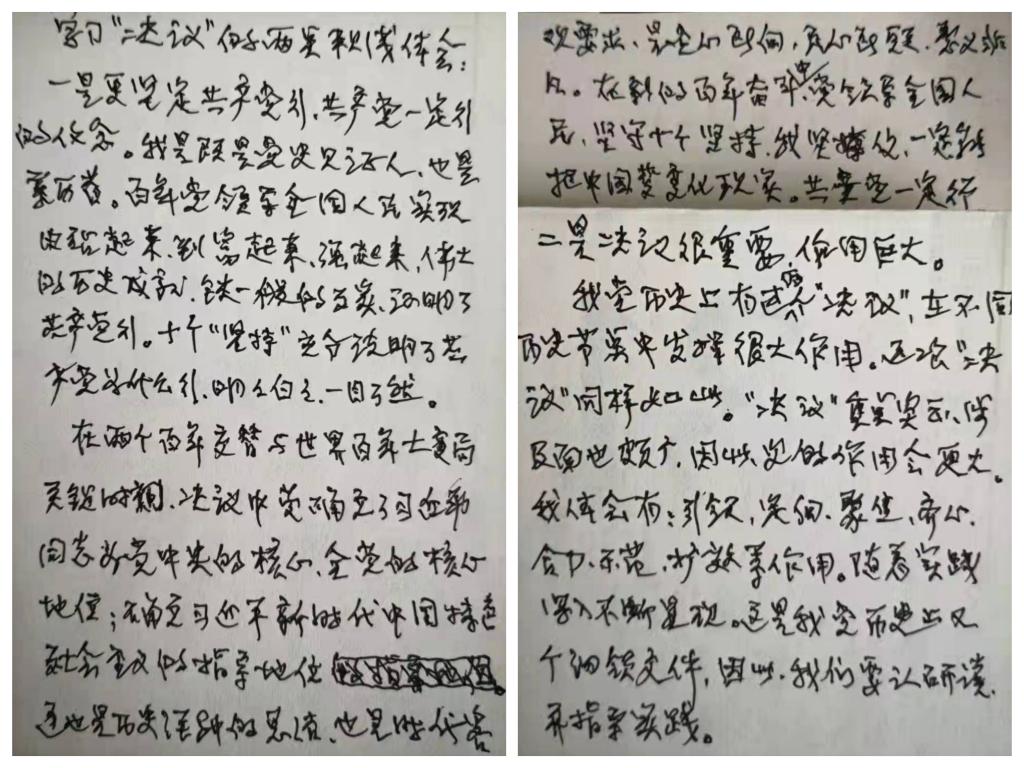 学习“决议”的两点粗浅体会：
一是更坚定共产党行，共产党一定行
的信念。我是既是党史见证人，也是
亲历者。百年党领导全国人民实现
由站起来，到富起来、强起来，伟大
的历史成就，铁一般的事实，证明了
共产党行。十个“坚持”充分说明了共
产党为什么行，明明白白，一目了然。
在两个百年交替与世界百年大变局
关键时期，决议中党确立了习近平
同志为党中央的核心、全党的核心
地位；确立习近平新时代中国特色
社会主义的指导地位
这也是历史经验的总结，也是时代客
观要求，是党心所向，民心所愿，意义非
凡。在新的百年奋斗中，党领导全国人
民，坚守十个坚持，我坚信，一定能
把中国梦变化现实。共产党一定行
二是决议很重要，作用巨大。
我党历史上有过两个“决议”，在不同
历史节点中发挥很大作用。这次“决
议”同样如此。“决议”真实，涉
及面也颇广，因此它的作用会更大。
我体会有：引领，定向，聚焦，齐心，
合力，示范，扩效等作用。随着实践
深入不断显现。这是我党历史上又
个纲领文件，因此，我们要认研读，
并指导实践。